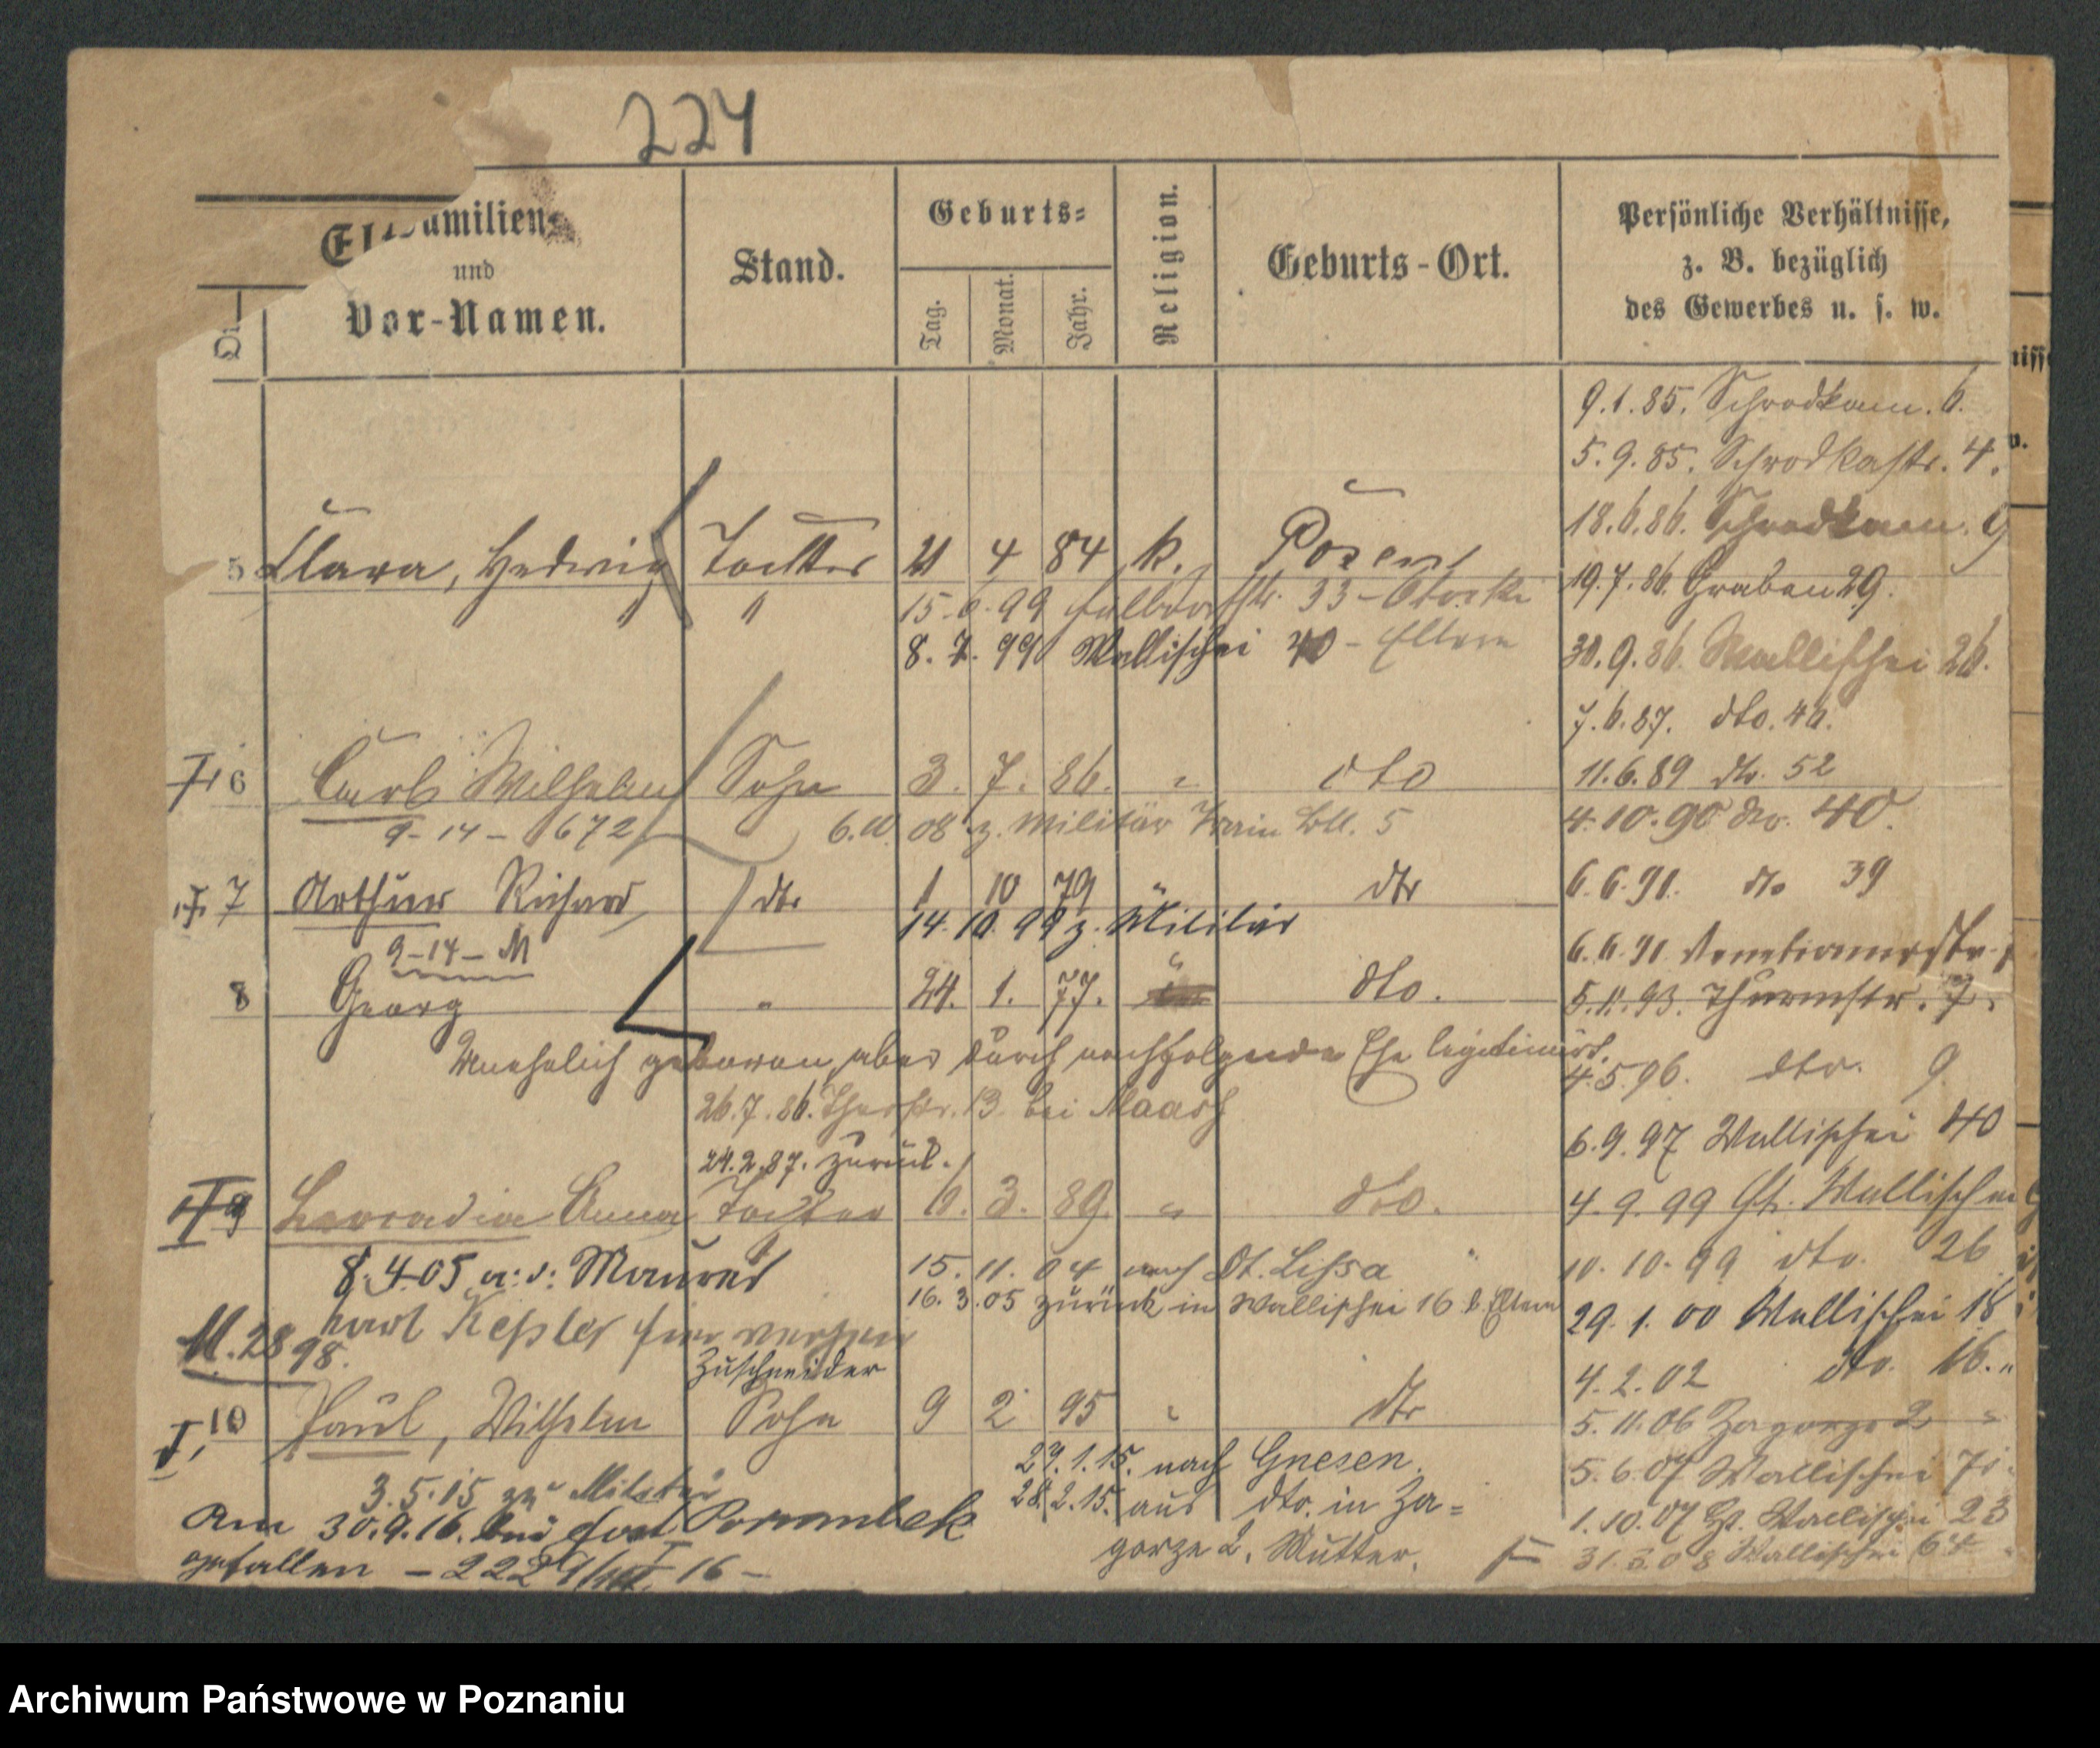 224
Familien-
und
Vor-Namen.
Stand.
Geburts-
Tag.
Monat.
Jahr.
Religion.
Geburts-Ort.
Persönliche Verhältnisse,
z. B. bezüglich
des Gewerbes u. s. w.
9.1.85. Schrodkam. 6.
5.9.85. Schrodkastr. 4.
18.6.86. Schrodkam. 9
5 Clara, Hedwig Tochter 21 4 84 k. Posen
19.7.86. Graben 29.
15.6.99 33 -
8.7.99 Wallischei 40 - Eltern
30.9.86. Wallischei 26.
7.6.87. dto. 46.
6 Carl Wilhelm Sohn 3. 7. 86. " dto
11.6.89 dto. 52
9-14- 672
08 z. Militär Train Btl. 5
4.10.90 dto. 40.
7 Arthur Richard dto 1 10 79 " dto
6.6.91. dto 39
14.10.99 z. Militär
9-14- M
Venetianerstr.
8 Georg " 24. 1. 77. dto.
5.11.93. Thurmstr. 7.
Unehelich geboren, aber durch nachfolgende Ehe legitimiert.
4.5.96. dto. 9
26.7.86. 13. bei
24.2.87. zurück.
6.9.97 Wallischei 40
9 Leocadia Anna Tochter 6. 3. 89. " dto.
4.9.99 Gr. Wallischei
8.4.05 a: d: Maurer
15.11.04 nach Dt. Lissa
10.10.99 dto. 26
16.3.05 zurück in Wallischei 16 b. Eltern
29.1.00 Wallischei 18
Karl Kessler
M. 28 98.
Zuschneider
4.2.02 dto. 16.
10 Paul, Wilhelm Sohn 9 2 95 " dto
5.11.06 Zagorze 2
27.1.15. nach Gnesen.
5.6.07 Wallischei
3.5.15 zu Militär
28.2.15. aus dto. in Za=
1.10.07 Gr. Wallischei 23
Am 30.9.16. bei
gorze 2, Mutter.
31.3.08 Wallischei
gefallen -
Archiwum Państwowe w Poznaniu